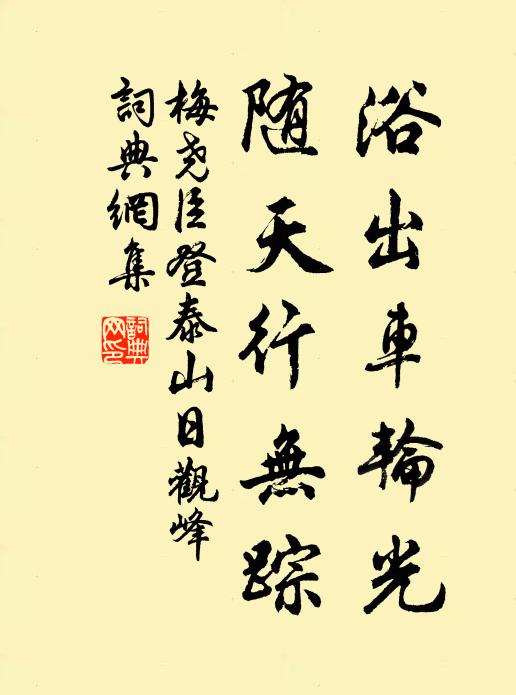 浴出車輪光
随天行無踪
梅尧臣登泰山日觀峰
詞典網集
詞典
网印